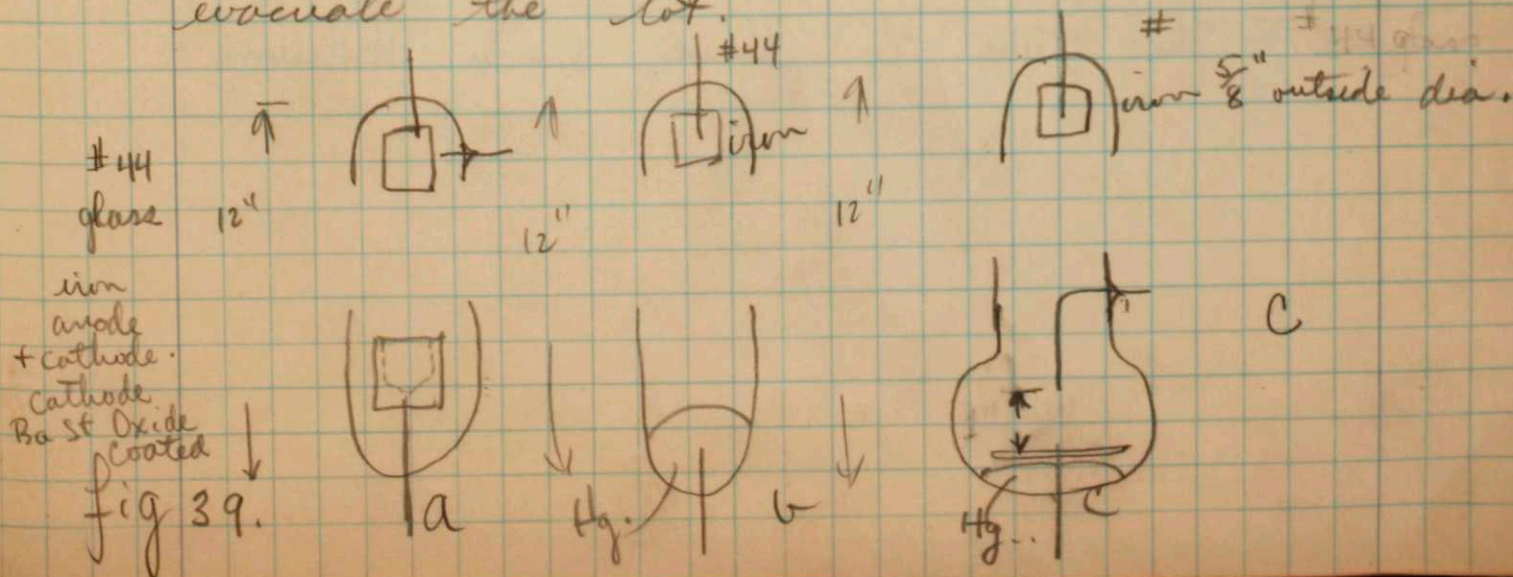 evacuate the lot.
#44
#
iron 5/8" outside dia.
iron
#44
glass 12"
12"
12"
iron
anode
+ cathode.
cathode
Ba St Oxide
coated
C
fig 39.
a
Hg.
b
Hg..
C